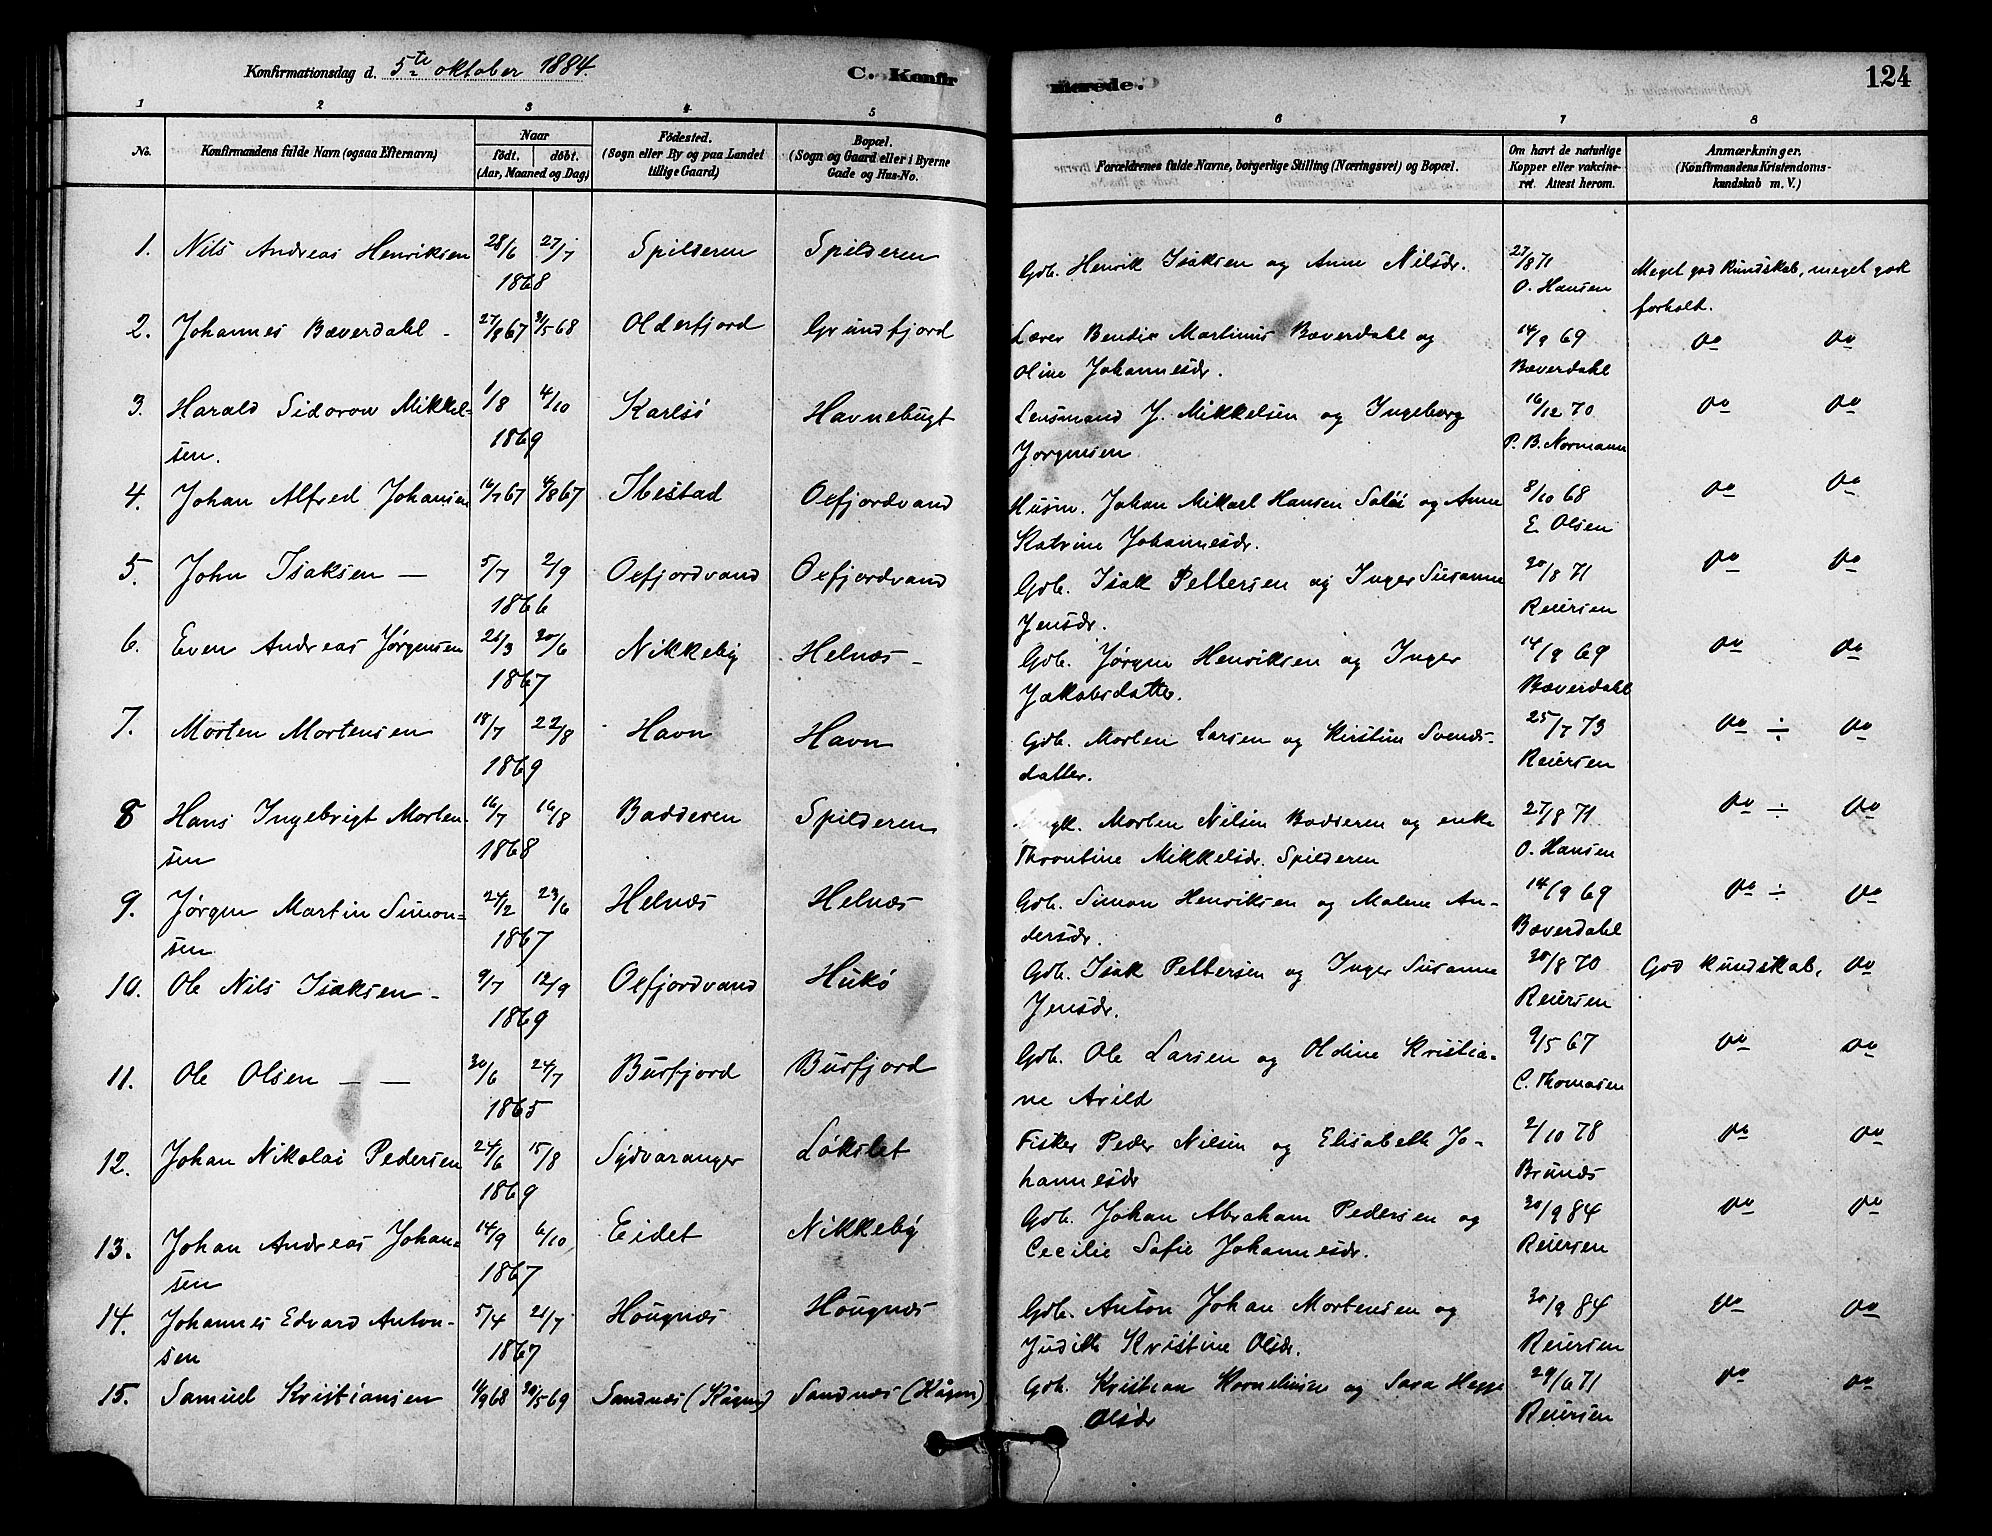 Konfirmationsdag d. 5te oktober 1884. C. Konfir
1 2 3 4 5
No. Konfirmandens fulde Navn (ogsaa Efternavn) Naar födt. döbt. (Aar, Maaned og Dag) Födested. (Sogn eller By og paa Landet tillige Gaard) Bopæl. (Sogn og Gaard eller i Byerne Gade og Hus-No.
1. Nils Andreas Henriksen 28/6 27/7 Spilderen Spilderen
1868
2. Johannes Bæverdahl - 27/9 67 31/5 68 Olderfjord Grundfjord
3. Harald Sidorow Mikkel- 1/8 4/10 Karlsö Havnebugt
sen. 1869
4. Johan Alfred Johansen 16/7 67 /8 67 Ibestad Oxfjordvand
5. John Isaksen — 5/7 2/9 Oxfjordvand Oxfjordvand
1866
6. Even Andreas Jørgensen 26/3 20/6 Nikkeby Helnæs -
1867
7. Morten Mortensen 18/7 22/8 Havn Havn
1869
8 Hans Ingebrigt Morten- 16/7 16/8 Badderen Spilderen
sen 1868
9. Jørgen Martin Simon- 24/2 23/6 Helnæs Helnæs
sen 1867
10. Ole Nils Isaksen - 9/7 12/9 Oxfjordvand Hukø
1869
11. Ole Olsen — — 30/6 24/7 Burfjord Burfjord
1865
12. Johan Nikolai Pedersen 24/6 15/8 Sydvaranger Løkslet
1869
13. Johan Andreas Johan- 14/9 6/10 Eidet Nikkeby
sen 1867
14. Johannes Edvard Anton- 5/4 21/7 Hougnæs Hougnæs
sen 1867
15. Samuel Kristiansen 11/9 68 30/5 69 Sandnæs (Kågen) Sandnæs (Kågen)
merede. 124
6 7 8
Forældrenes fulde Navne, borgerlige Stilling (Næringsvei) og Bopæl. Om havt de naturlige Kopper eller vakcineret. Attest herom. Anmærkninger. (Konfirmandens Kristendomskundskab m. V.)
Gdb. Henrik Isaksen og Anne Nilsdr. 27/8 71 Meget god kundskab, meget godt
O. Hansen forhold.
Lærer Bendix Martinus Bæverdahl og 14/9 69 do do
Oline Johannesdr. Bæverdahl
Lensmand J. Mikkelsen og Ingeborg 16/12 70 do do
Jørgensen P. B. Normann
Husm. Johan Mikael Hansen og Anne 8/10 68 do do
Katrine Johannesdr. E. Olsen
Gdb. Isak Pettersen og Inger Susanne 20/8 71 do do
Jensdr. Reiersen
Gdb. Jørgen Henriksen og Inger 14/9 69 do do
Jakobsdatter. Bæverdahl
Gdb. Morten Larsen og Kirstine Svends- 25/7 73 do ÷ do
datter. Reiersen
Morten Nilsen Badderen og enke 27/8 71 do ÷ do
Throntine Mikkelsdr. Spilderen O. Hansen
Gdb. Simon Henriksen og Malene An- 14/9 69 do ÷ do
dersdr. Bæverdahl
Gdb. Isak Pettersen og Inger Susanne 20/8 70 God kundskab, do
Jensdr. Reiersen
Gdb. Ole Larsen og Oldine Kristia- 9/5 67 do do
ne Arild C. Thomasen
Fisker Peder Nilsen og Elisabeth Jo- 2/10 78 do do
hannesdr Brunæs
Gdb. Johan Abraham Pedersen og 30/9 84 do do
Cecilie Sofie Johannesdr. Reiersen
Gdb. Anton Johan Mortensen og 30/9 84 do do
Judith Kristine Olsdr. Reiersen
Gdb. Kristian Korneliusen og Sara Hegge 29/6 71 do do
Olsdr Reiersen